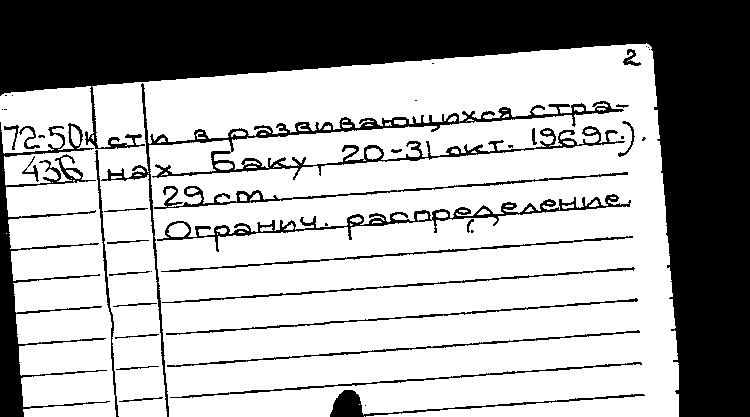 2
72-50к сти в развивающихся стра-
436 нах. Баку, 20-31 окт. 1969г.).
29 cm.
Огранич. распределение.